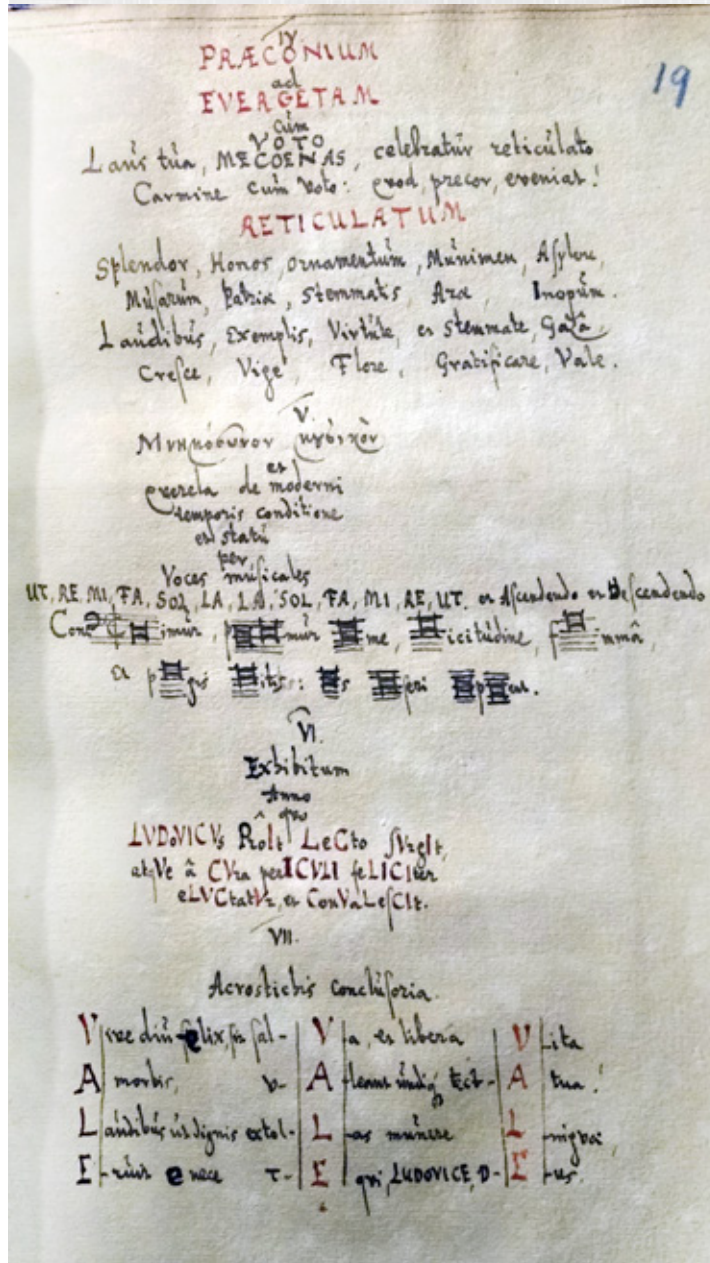 19
IV
PRÆCONIUM
ad
EVERGETAM
cùm
VOTO
Laus tùa, MECOENAS, celebratùr reticùlato
Carmine cùm voto: qvod, precor, eveniat!
RETICULATUM
Splendor, Honos, ornamentùm, Mùnimen, Asyle,
Mùsarùm, Patriæ, Stemmatis, Aræ, Inopùm.
Laùdibùs, Exemplis, Virtùte, et Stemmate,
Cresce, Vige, Flore, Gratificare, Vale.
V.
et
qverela de moderni
temporis conditione
et statù
per
Voces mùsicales
UT, RE, MI, FA, SOL, LA, LA, SOL, FA, MI, RE, UT. et Ascendendo et Descendendo
VI.
Exhibitum
Anno
qvo
LVDoVICVs LeCto sVrgIt,
atqVe â CVra perICVLI feLICIter
eLVCtatVr, et ConVaLesCIt.
VII.
Acrostichis conclùsoria.
V ive diù felix, sis sal- V a, et libera V ita
A morbis, v- A leant ùndiq tect- A tua!
L aùdibùs ùt dignis extol- L as mùnere L
E rùit e nece t- E qvi, LUDOVICE, D- E us.